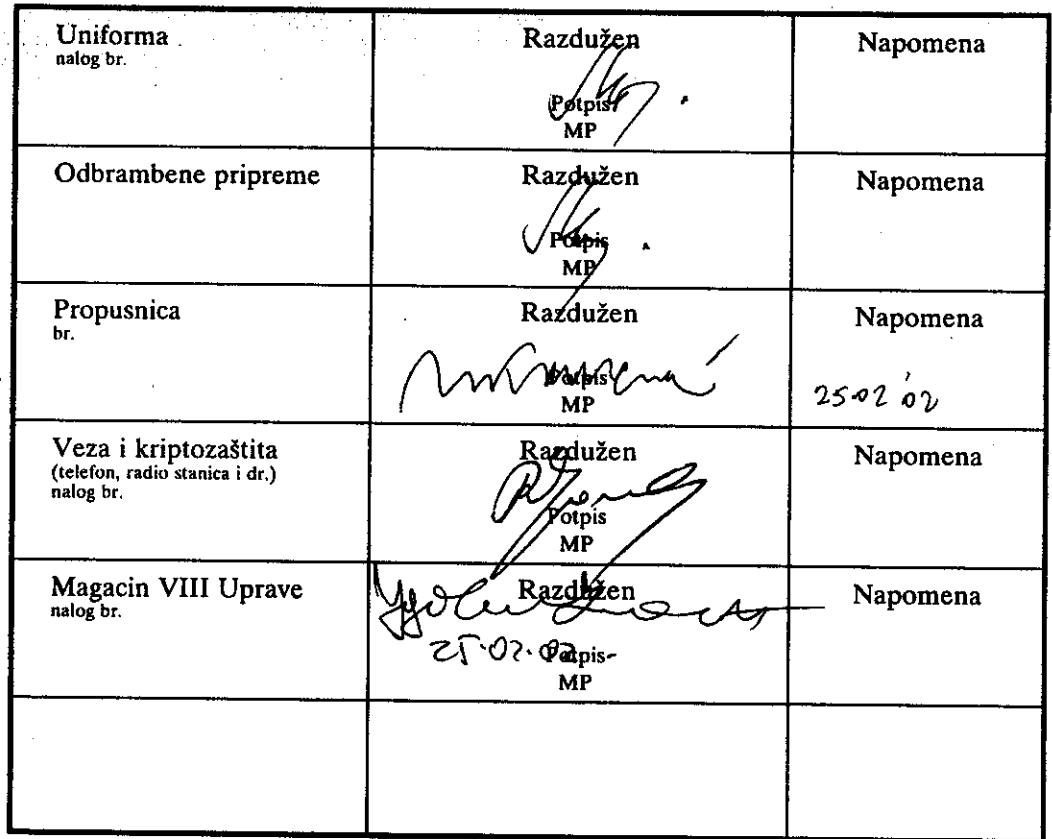 Uniforma
nalog br.
Razdužen
Potpis
MP
Napomena
Odbrambene pripreme
Razdužen
Potpis
MP
Napomena
Propusnica
br.
Razdužen
Potpis
MP
Napomena
25 02 02
Veza i kriptozaštita
(telefon, radio stanica i dr.)
nalog br.
Razdužen
Potpis
MP
Napomena
Magacin VIII Uprave
nalog br.
Razdužen
25.02.02
Potpis
MP
Napomena